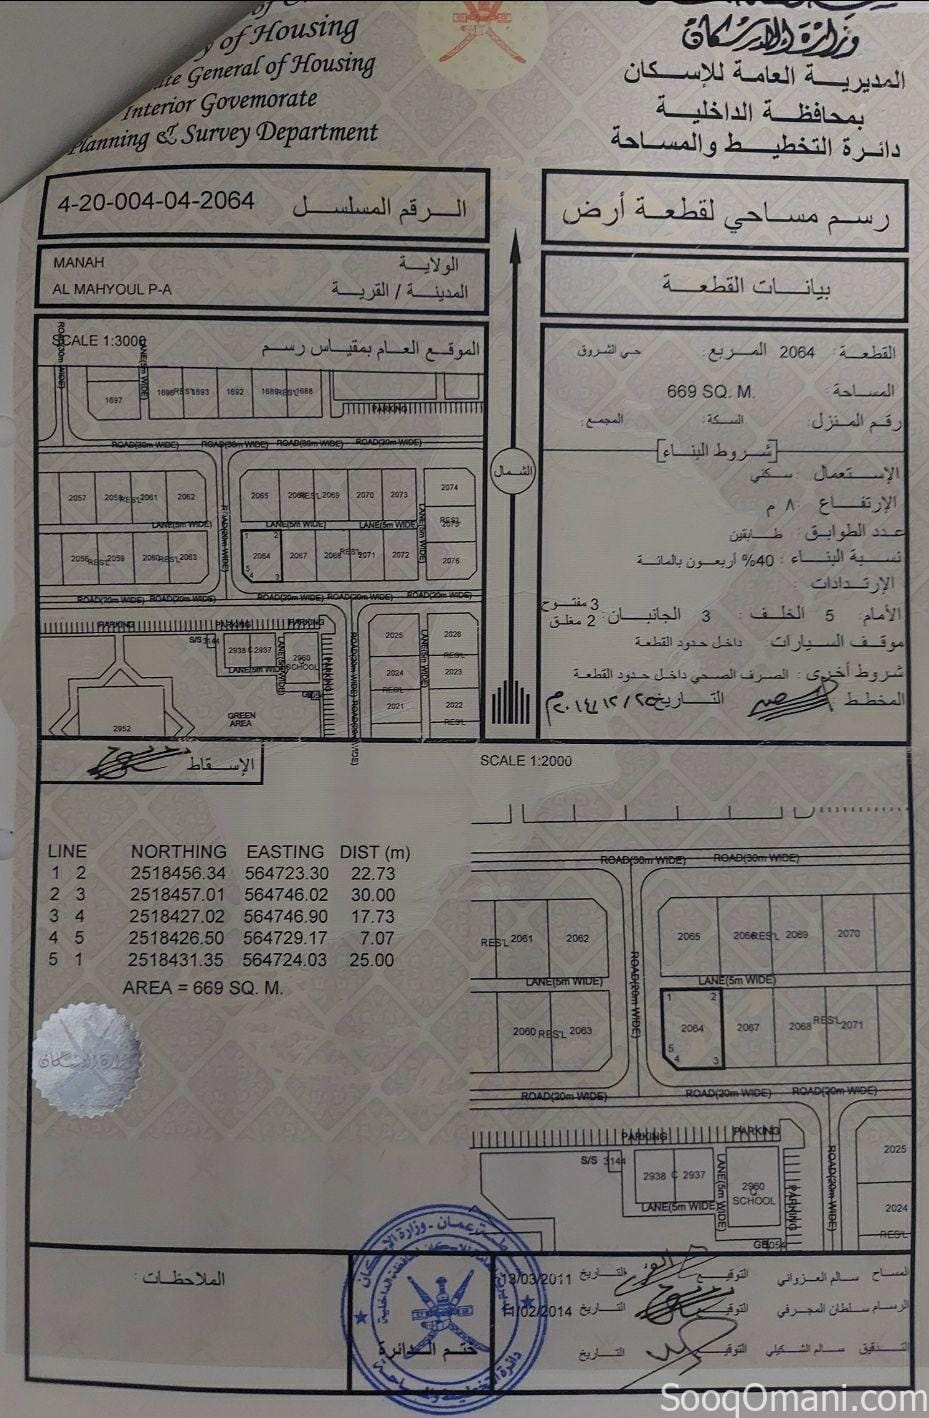 of Housing
General of Housing
Interior Govemorate
Planning & Survey Department
وزارة الإسكان
المديرية العامة للإسكان
بمحافظة الداخلية
دائرة التخطيط والمساحة
4-20-004-04-2064 الرقم المسلسل
رسم مساحي لقطعة أرض
MANAH الولاية
AL MAHYOUL P-A المدينة / القرية
بيانات القطعة
SCALE 1:3000 الموقع العام بمقياس رسم
القطعة: 2064 المربع: حي الشروق
المساحة: 669 SQ. M.
رقم المنزل: السكة: المجمع:
شروط البناء
الإستعمال: سكني
الإرتفاع: ٨ م
عدد الطوابق: طابقين
نسبة البناء: 40% أربعون بالمائة
الإرتدادات:
الأمام: 5 الخلف: 3 الجانبان: 3 مفتوح
2 مغلق
موقف السيارات: داخل حدود القطعة
شروط أخرى: الصرف الصحي داخل حدود القطعة
المخطط التاريخ: ٢٠١٤/١٢/٢٥م
الشمال
1697 1696 RES'L 1693 1692 1689 RES'L 1688
PARKING
ROAD(30m WIDE) ROAD(30m WIDE) ROAD(30m WIDE) ROAD(30m WIDE)
2057 2058 RES'L 2061 2062 2065 2066 RES'L 2069 2070 2073 2074
LANE(5m WIDE) LANE(5m WIDE) LANE(5m WIDE) RES'L 2075
2056 RES'L 2059 2060 RES'L 2063 2064 2067 2068 RES'L 2071 2072 2076
ROAD(20m WIDE) ROAD(20m WIDE) ROAD(20m WIDE) ROAD(20m WIDE)
PARKING PARKING PARKING
S/S 3144 2938 C 2937 2960 SCHOOL 2025 2026
LANE(5m WIDE) RES'L
2024 2023
RES'L
2021 2022
RES'L
GREEN AREA
2952
الإسقاط
SCALE 1:2000
LINE NORTHING EASTING DIST (m)
1 2 2518456.34 564723.30 22.73
2 3 2518457.01 564746.02 30.00
3 4 2518427.02 564746.90 17.73
4 5 2518426.50 564729.17 7.07
5 1 2518431.35 564724.03 25.00
AREA = 669 SQ. M.
ROAD(30m WIDE) ROAD(30m WIDE)
RES'L 2061 2062 2065 2066 RES'L 2069 2070
LANE(5m WIDE) ROAD(20m WIDE) LANE(5m WIDE)
1 2
2060 RES'L 2063 2064 2067 2068 RES'L 2071
5 4 3
ROAD(20m WIDE) ROAD(20m WIDE) ROAD(20m WIDE)
PARKING PARKING
S/S 3144 2938 C 2937 2960 C SCHOOL 2025
LANE(5m WIDE) LANE(5m WIDE) PARKING ROAD(20m WIDE) 2024
RES'L
وزارة الإسكان
الملاحظات:
ختم الدائرة
المساح سالم العزواني التوقيع التاريخ 13/03/2011
الرسام سلطان المجرفي التوقيع التاريخ 11/02/2014
التدقيق سالم الشكيلي التوقيع التاريخ
SooqOmani.com